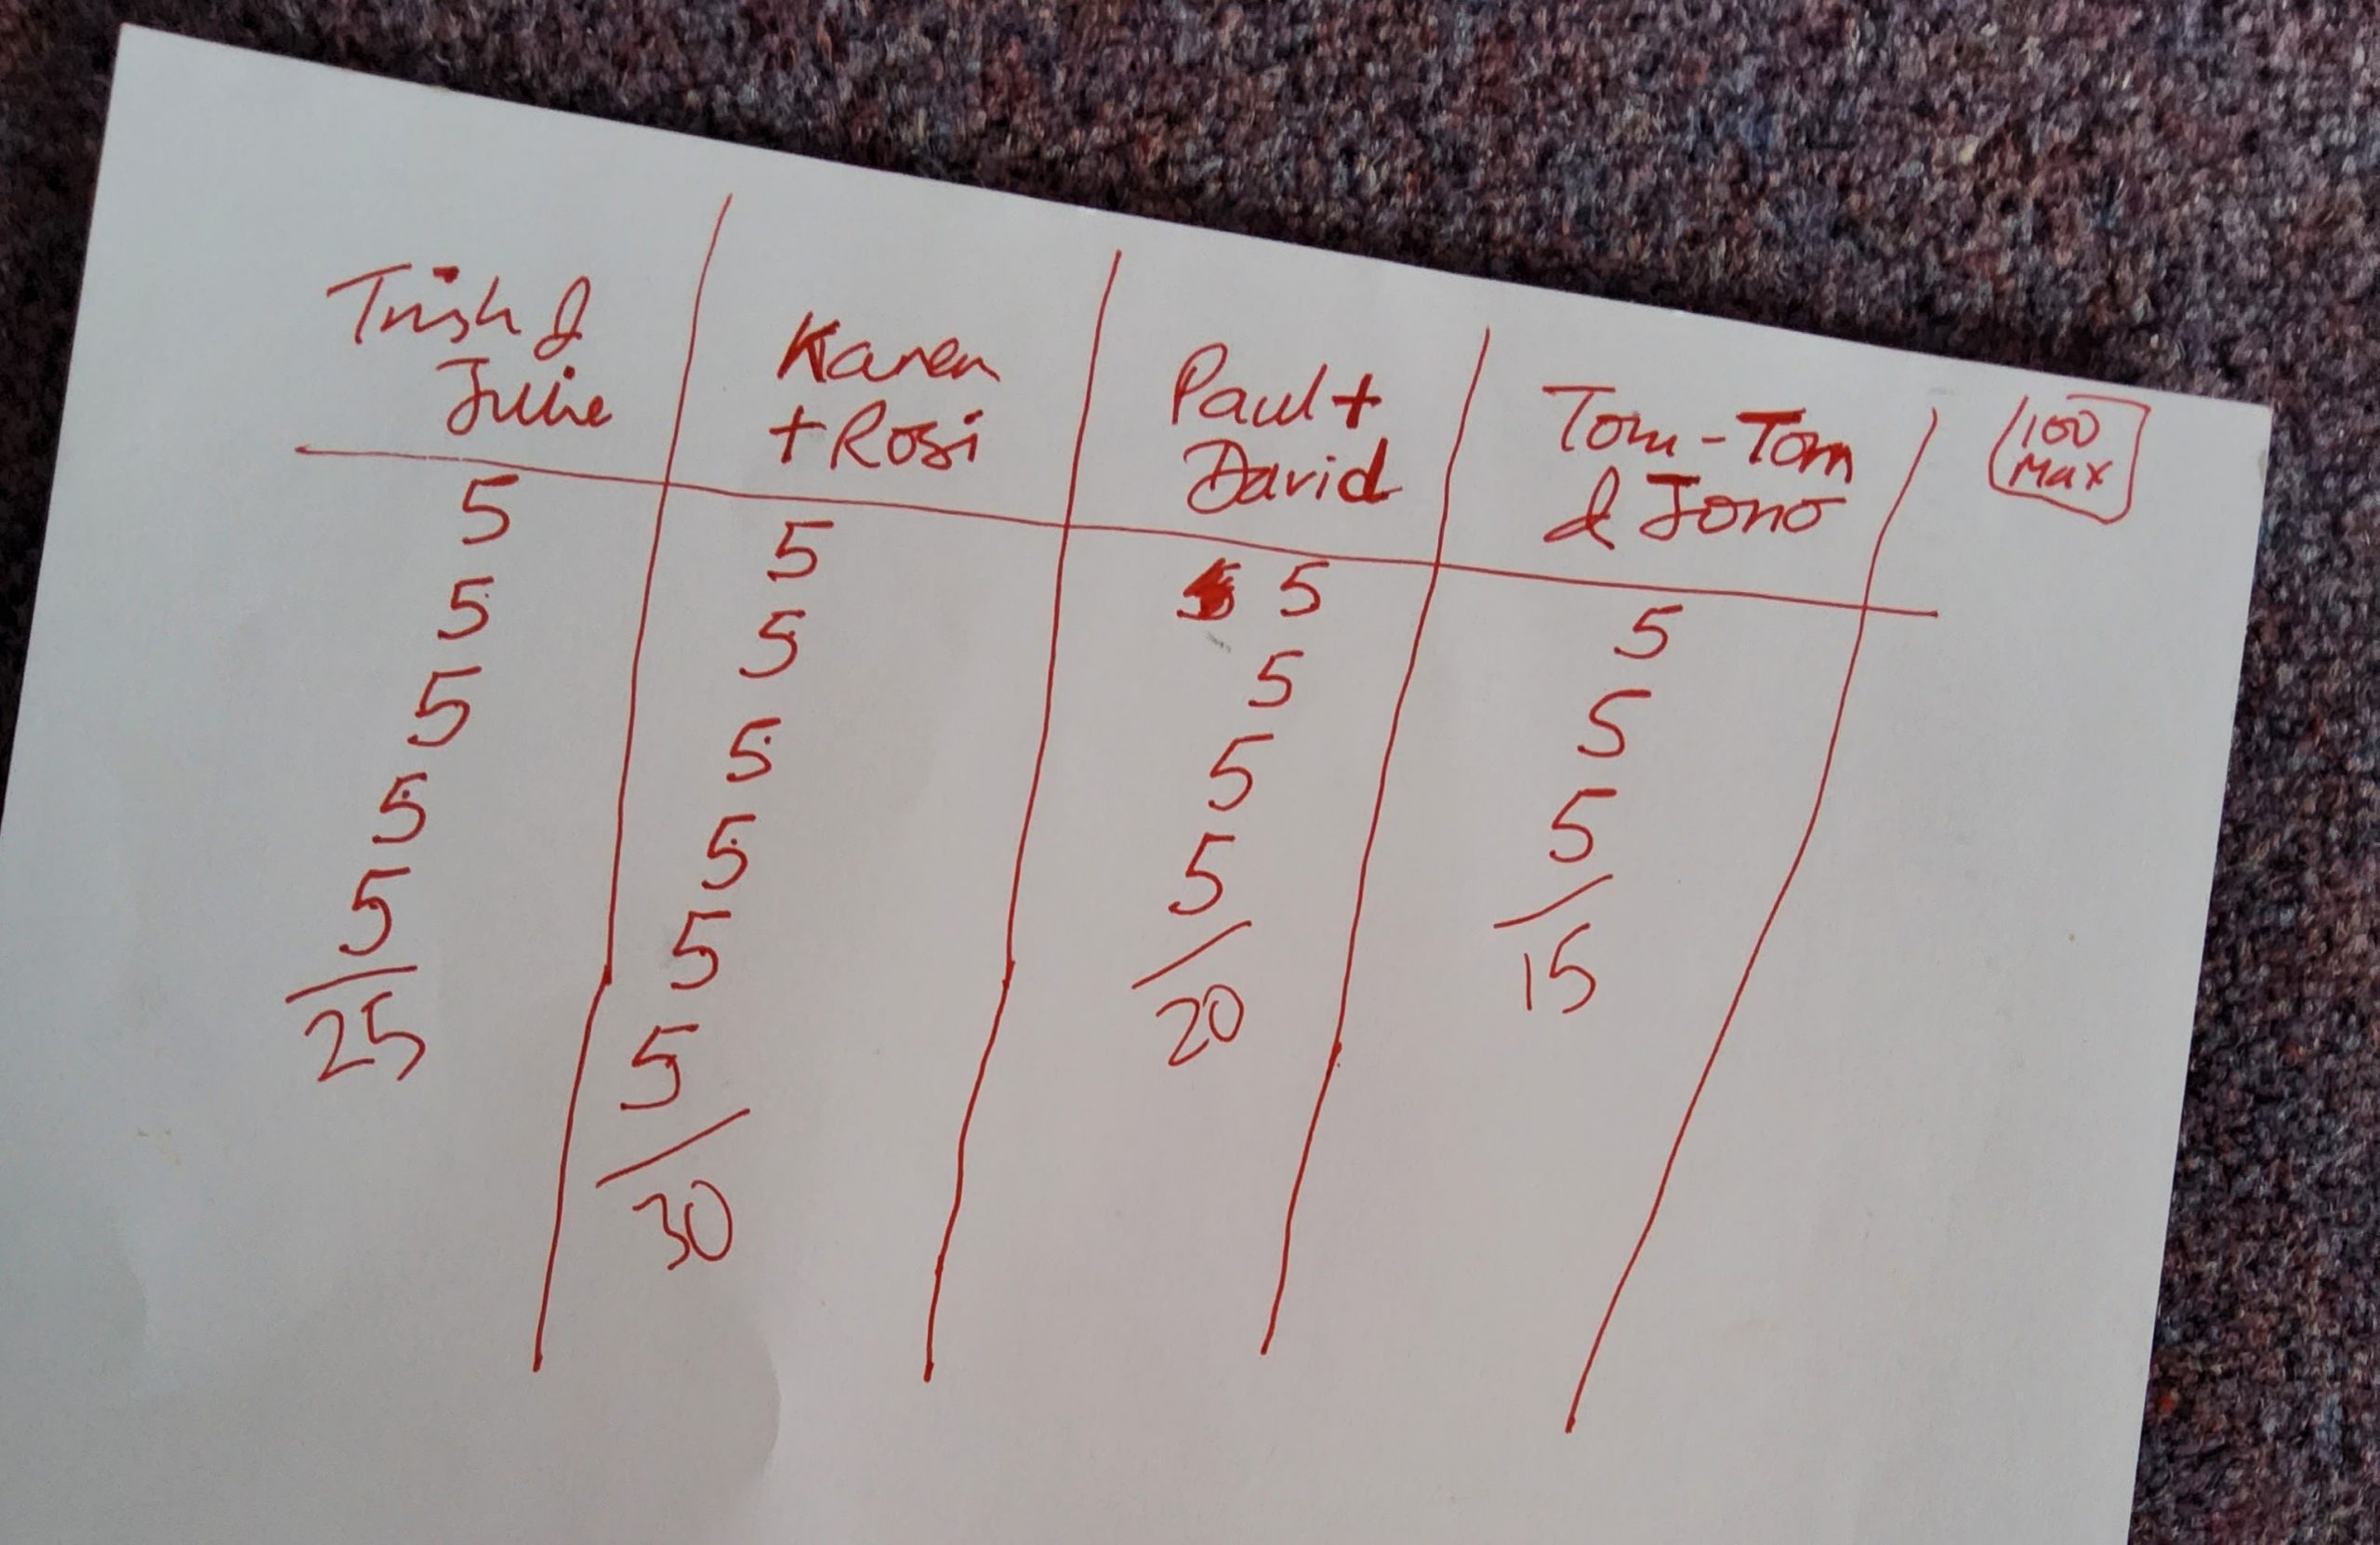 Trish &
Julie
5
5
5
5
5
25
Karen
+ Rosi
5
5
5
5
5
5
30
Paul +
David
5
5
5
5
20
Tom-Tom
& Jono
5
5
5
15
100
Max